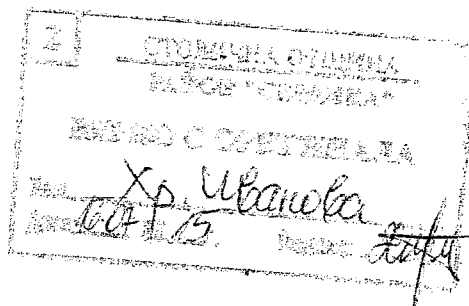 2
СТОЛИЧНА ОБЩИНА
РАЙОН "СЕРДИКА"
ВЯРНО С ОРИГИНАЛА
Име: Хр. Иванова
Дата: 16.07.15. Подпис: